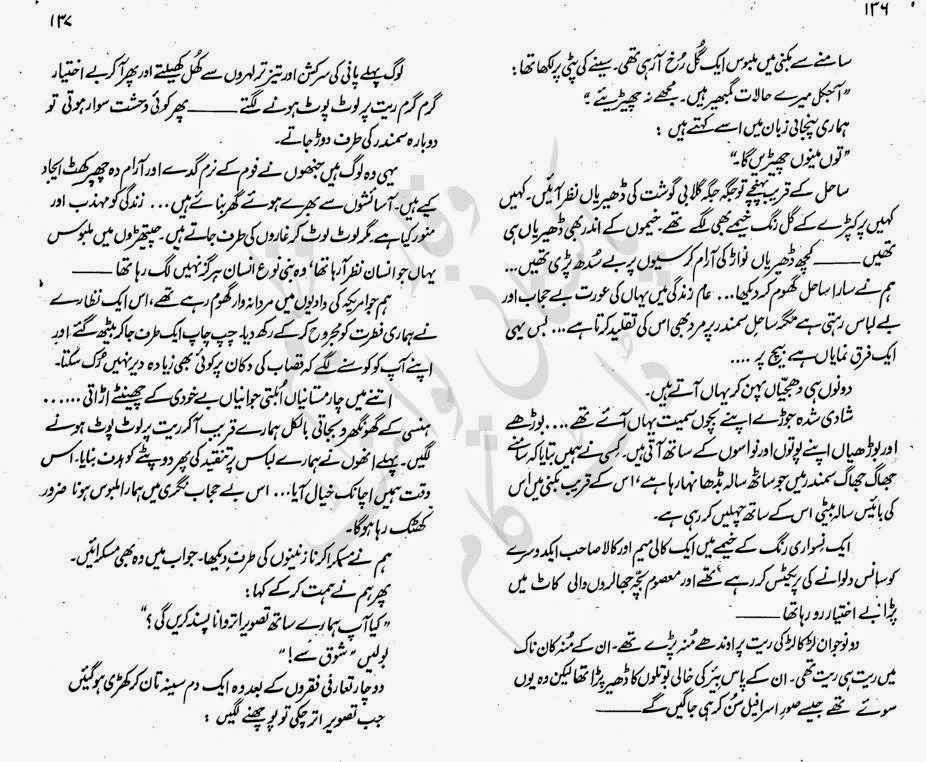 ۱۳۶
سامنے سے بکنی میں ملبوس ایک گُل رُخ آرہی تھی۔ سینے کی پٹی پر لکھا تھا:
"آجکل میرے حالات گمبھیر ہیں۔ مجھے نہ چھیڑیئے"
ہماری پنجابی زبان میں اسے کہتے ہیں:
"توں مینوں چھیڑیں گا۔"
ساحل کے قریب پہنچے تو جگہ جگہ گلابی گوشت کی ڈھیریاں نظر آئیں۔ کہیں
کہیں پر کپڑے کے گل رنگ خیمے بھی لگے تھے۔ خیموں کے اندر بھی ڈھیریاں ہی
تھیں ——— کچھ ڈھیریاں نواڑ کی آرام کرسیوں پر بے سُدھ پڑی تھیں...
ہم نے سارا ساحل گھوم کر دیکھا... عام زندگی میں یہاں کی عورت بے حجاب اور
بے لباس رہتی ہے مگر ساحل سمندر پر مرد بھی اس کی تقلید کرتا ہے... بس یہی
ایک فرق نمایاں ہے بیچ پر ....
دونوں ہی دھجیاں پہن کر یہاں آتے ہیں۔
شادی شدہ جوڑے اپنے بچوں سمیت یہاں آئے تھے.... بوڑھے
اور بوڑھیاں اپنے پوتوں اور نواسوں کے ساتھ آتی ہیں۔ کسی نے ہمیں بتایا کہ سامنے
جھاگ جھاگ سمندر میں جو ساٹھ سالہ بڈھا نہا رہا ہے، اس کے قریب بکنی میں اس
کی بائیس سالہ بیٹی اس کے ساتھ چہلیں کر رہی ہے۔
ایک نسواری رنگ کے خیمے میں ایک کالی میم اور کالا صاحب ایک دوسرے
کو سانس دلوانے کی پریکٹس کر رہے تھے اور معصوم بچّہ جھالروں والی کاٹ میں
پڑا بے اختیار رو رہا تھا ———
دو نوجوان لڑکا لڑکی ریت پر اوندھے مُنہ پڑے تھے۔ ان کے مُنہ کان ناک
میں ریت ہی ریت تھی۔ ان کے پاس بیئر کی خالی بوتلوں کا ڈھیر پڑا تھا لیکن وہ یوں
سوئے تھے جیسے صورِ اسرافیل سُن کر ہی جاگیں گے ———
۱۳۷
لوگ پہلے پانی کی سرکش اور تیز تر لہروں سے کھُل کھیلتے اور پھر آکر بے اختیار
گرم گرم ریت پر لوٹ پوٹ ہونے لگتے ——— پھر کوئی دحشت سوار ہوتی تو
دوبارہ سمندر کی طرف دوڑ جاتے۔
یہی وہ لوگ ہیں جنھوں نے فوم کے نرم گدے اور آرام دہ چھپرکھٹ ایجاد
کیے ہیں۔ آسائشوں سے بھرے ہوئے گھر بنائے ہیں... زندگی کو مہذب اور
منور کیا ہے۔ مگر لوٹ لوٹ کر غاروں کی طرف جاتے ہیں۔ چیتھڑوں میں ملبوس
یہاں جو انسان نظر آرہا تھا، وہ بنی نوع انسان ہرگز نہیں لگ رہا تھا ———
ہم جو امریکہ کی وادیوں میں مردانہ وار گھوم رہے تھے، اس ایک نظارے
نے ہماری فطرت کو مجروح کر کے رکھ دیا۔ چپ چاپ ایک طرف جا کر بیٹھ گئے اور
اپنے آپ کو کوسنے لگے کہ قصاب کی دکان پر کوئی بھی زیادہ دیر نہیں رُک سکتا۔
اتنے میں چار مستانیاں اُبلتی جوانیاں بے خودی کے چھینٹے اڑاتی ......
ہنسی کے گھونگھرو بجاتی بالکل ہمارے قریب آکر ریت پر لوٹ پوٹ ہونے
لگیں۔ پہلے انھوں نے ہمارے لباس پر تنقید کی پھر دوپٹے کو ہدف بنایا۔ اس
وقت ہمیں اچانک خیال آیا... اس بے حجاب نگری میں ہمارا ملبوس ہونا ضرور
کھٹک رہا ہوگا۔
ہم نے مسکرا کر نازنینوں کی طرف دیکھا۔ جواب میں وہ بھی مسکرائیں۔
پھر ہم نے ہمت کر کے کہا:
"کیا آپ ہمارے ساتھ تصویر اتروانا پسند کریں گی؟"
بولیں "شوق سے!"
دو چار تعارفی فقروں کے بعد وہ ایک دم سینہ تان کر کھڑی ہوگئیں
جب تصویر اتر چکی تو پوچھنے لگیں: